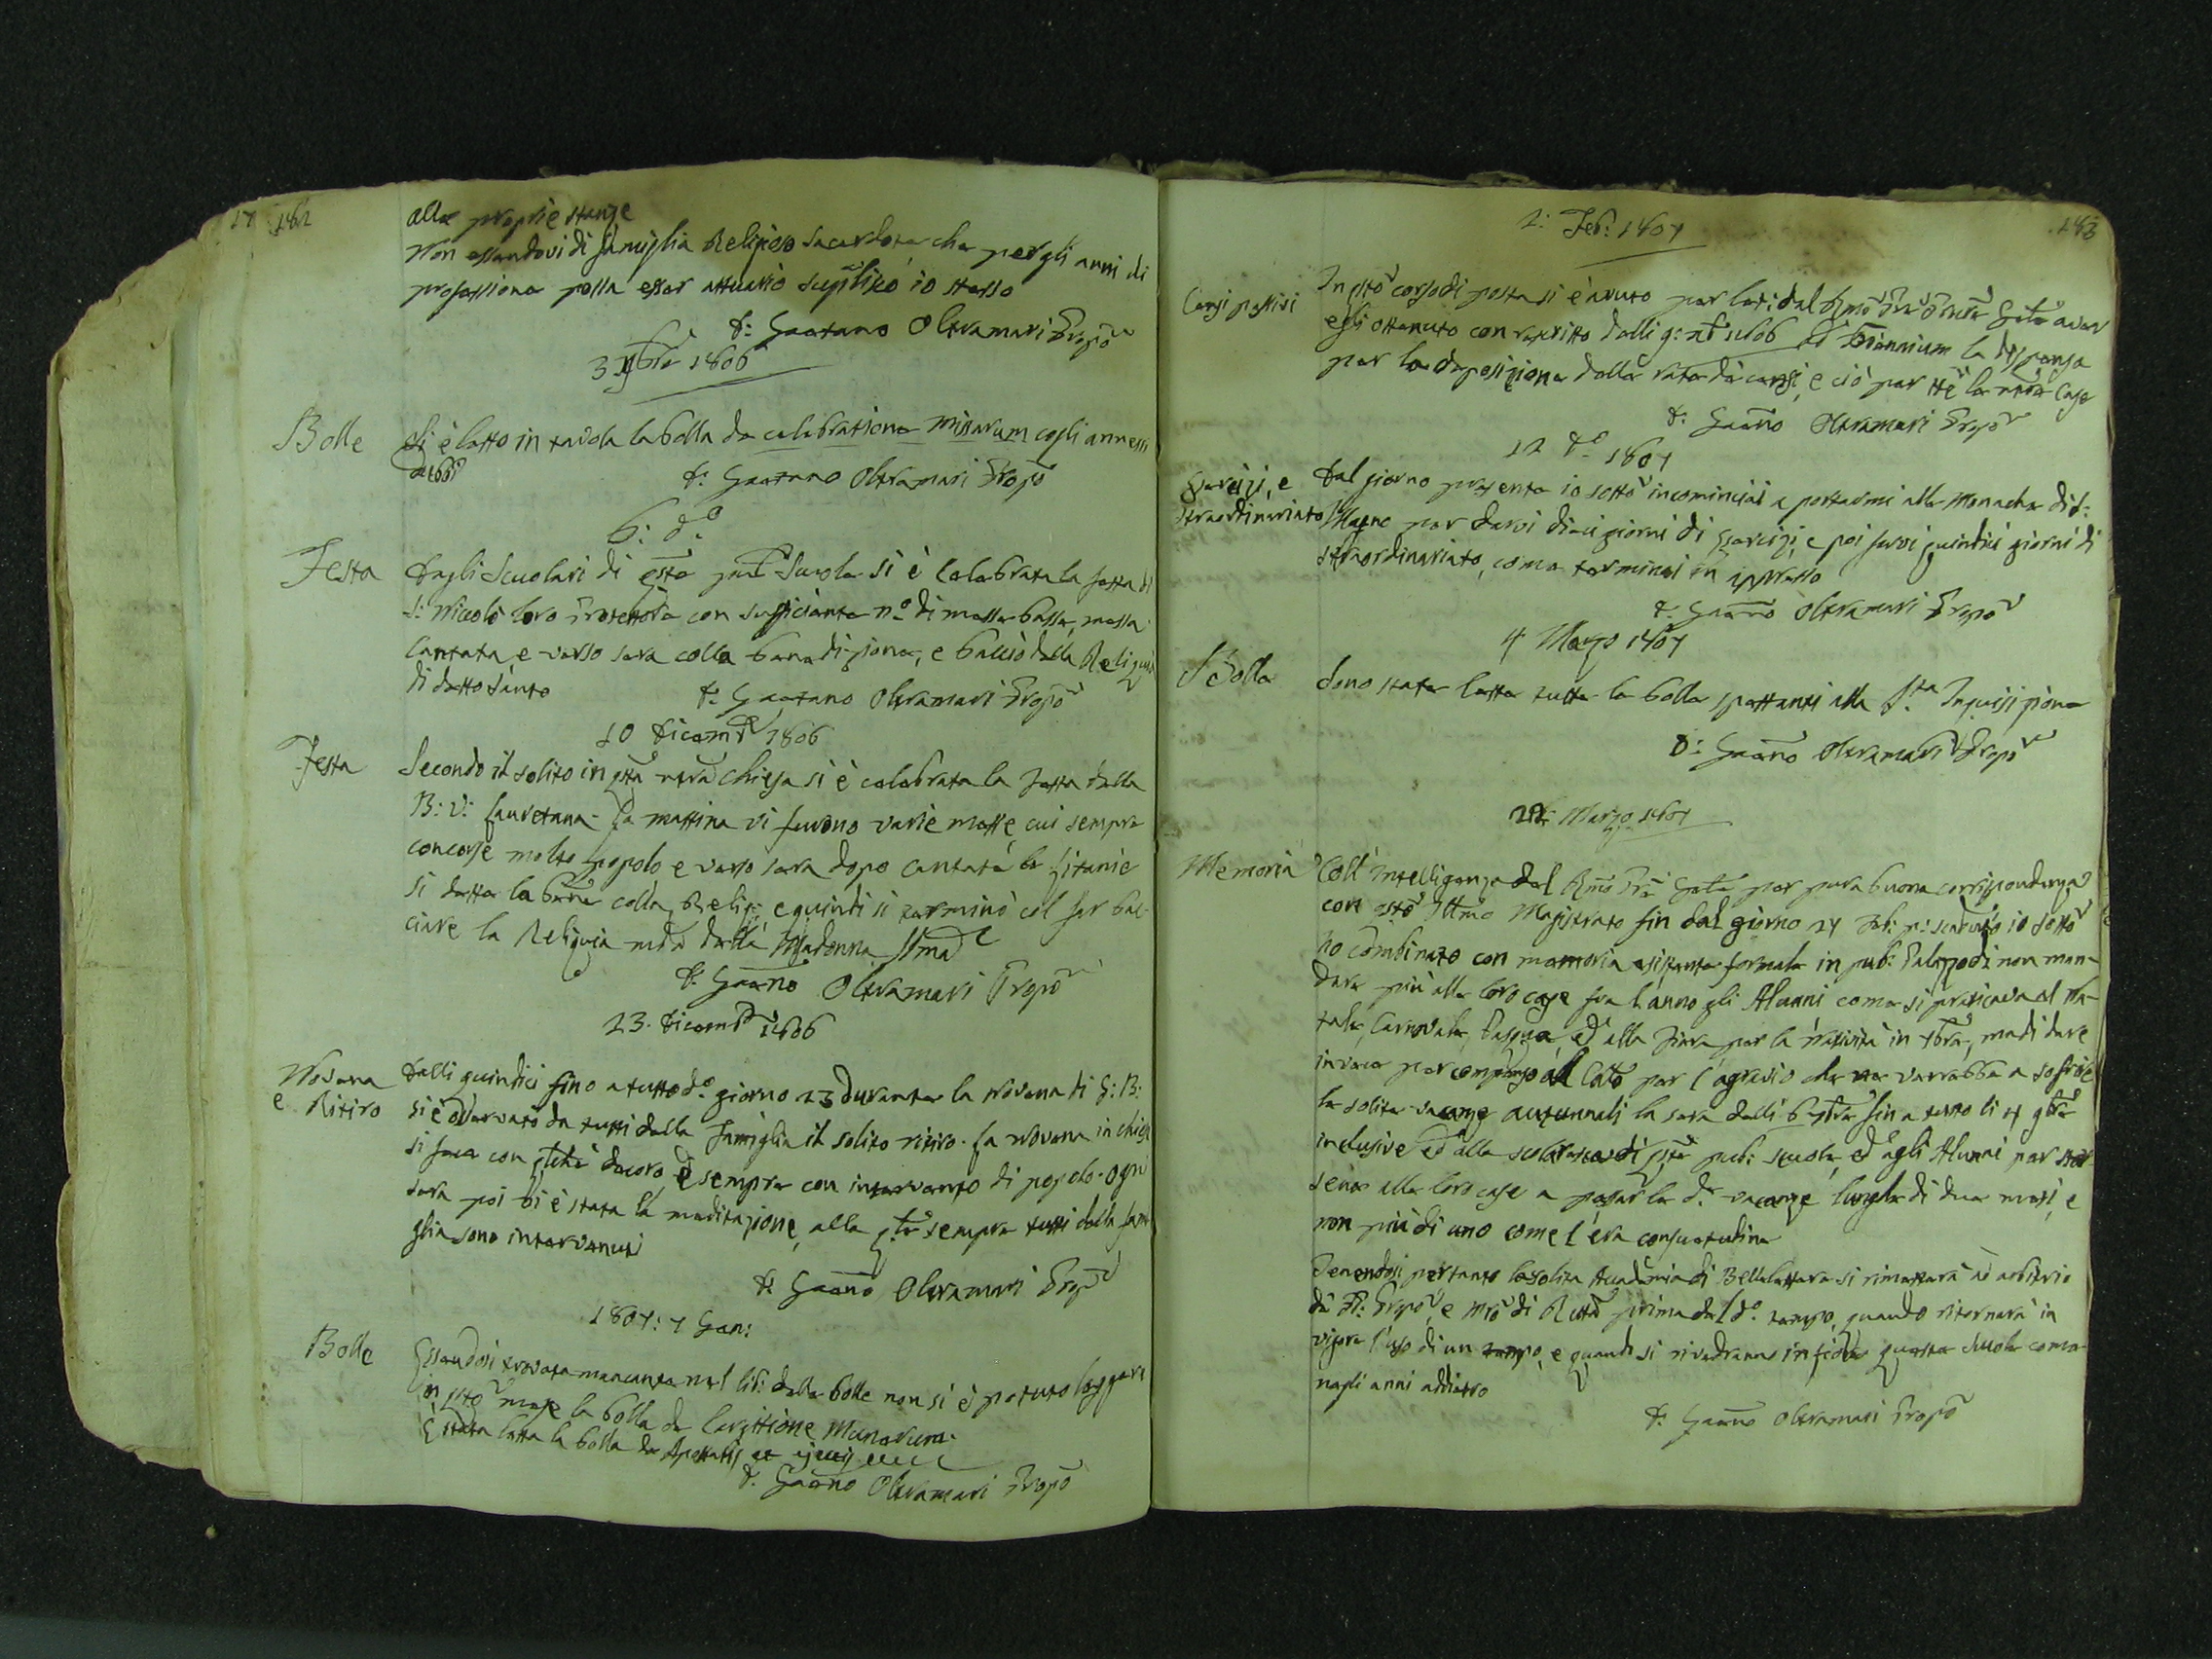 182
alle proprie stanze
Non essendovi di famiglia Religioso Sacerdote, che per gli anni di
professione possa esser attuario supplisco io stesso
D: Gaetano Oltramari Prepo
3 Xbre 1806
Bolle
Si è letto in tavola la bolla de celebratione Missarum cogli annessi
decreti
D: Gaetano Oltramari Prepo
6: do
Festa
Dagli Scuolari di qsta pub Scuola si è celebrata la festa di
S: Niccolò loro Protettore con sufficiente no di messe basse, messa
cantata, e verso sera colla benedizione, e baccio della Reliquia
di detto Santo
D: Gaetano Oltramari Prepo
10 Dicembre 1806
Festa
Secondo il solito in qsta nra Chiesa si è celebrata la festa della
B: V: Lauretana. La mattina vi furono varie messe, cui sempre
concorse molto popolo e verso sera dopo cantate le Litanie
si dette la bene colla Reliq: e quindi si terminò col far bac
ciare la Reliquia meda della Madonna SSma
D: Gaeno Oltramari Prepo
23. Dicembre 1806
Novena
e Ritiro
Dalli quindici fino a tutto do giorno 23 durante la Novena di G: B:
si è osservato da tutti della famiglia il solito ritiro. La Novena in chiesa
si fece con qlche decoro, e sempre con intervento di popolo. Ogni
sera poi vi è stata la meditazione, alla qle sempre tutti della fami
glia sono intervenuti
D: Gaeno Oltramari Prepo
1807: 7 Gen:
Bolle
Essendosi trovata mancante nel lib: delle bolle non si è potuto leggere
in qsto mese la bolla de largitione Munerum.
È stata letta la bolla de Apostatis et ejectis
D: Gaeno Oltramari Prepo
183
2: Feb: 1807
Censi passivi
In qsto corso di posta si è avuto per let: dal Rmo Pre Gnle aver
egli ottenuto con rescritto delli 9: 1806 ad Biennium la dispensa
per la deposizione delle rate de censi, e ciò per tte le nre Case
D: Gaeno Oltramari Prepo
12 do 1807
Esercizi, e
straordinariato
Dal giorno presente io sotto incominciai a portarmi alle Monache di S:
Magno per darvi dieci giorni di Esercizi, e poi farvi quindici giorni di
straordinariato, come terminai in appresso
D: Gaeno Oltramari Prepo
4 Marzo 1807
Bolle
Sono state lette tutte le bolle spettanti alla Sta Inquisizione
D: Gaeno Oltramari Prepo
22: Marzo 1807
Memoria
Coll' intelligenza del Rmo Pre Gnle per pura buona corrispondenza
con qsto Illmo Magistrato fin dal giorno 24 Feb: p: scaduto io sotto
ho combinato con memoria esistente formale in pub: Palazzo di non man
dare più alle loro case fra l'anno gli Alunni come si praticava al Na
tale, Carnovale, Pasqua, ed alla Fiera per la Natività in 7bre, ma di dare
invece per compenso al Collo per l'agravio che ne verrebbe a soffrire
le solite vacanze autunnali la sera delli 6 7bre fin a tutto li 4 9bre
inclusive ed alla scolaresca di qste pub: scuole, ed agli Alunni per star
sene alle loro case a passar le de vacanze lunghe di due mesi, e
non più di uno come l'era consuetudine
Tenendosi pertanto la solita Accademia di Bellelettere si rimetterà ad arbitrio
del P: Prepo, e Mro di Retta prima del do tempo, quando ritornerà in
vigore l'uso di un tempo, e quando si rivedranno in fiore queste Scuole come
negli anni addietro
D: Gaeno Oltramari Prepo